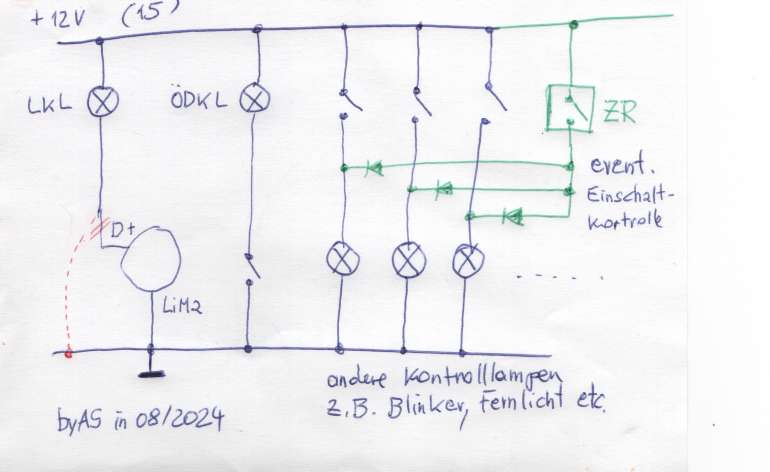 +12V (15)
LKL
ÖDKL
ZR
event.
Einschalt-
kontrolle
D+
LiMa
andere Kontrolllampen
z.B. Blinker, Fernlicht etc.
byAS in 08/2024